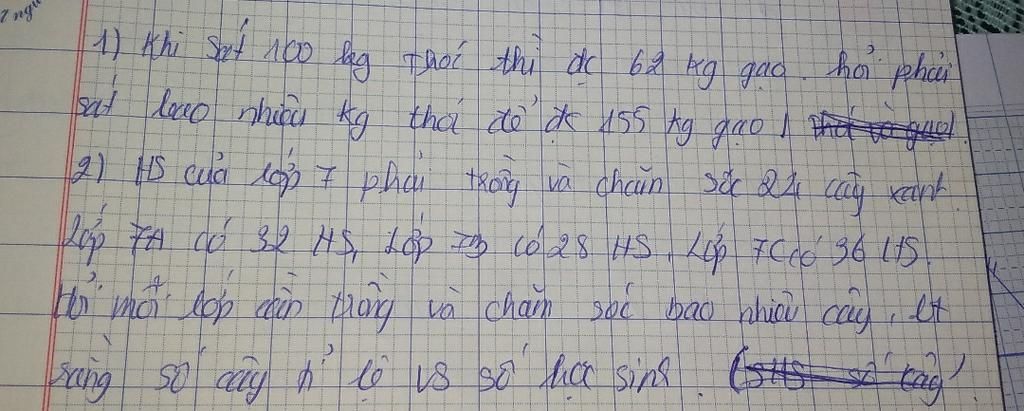 1) Khi sát 100 kg thóc thì đc 62 kg gạo. hỏi phải
sát bao nhiêu kg thóc để đc 155 kg gạo
2) HS của lớp 7 phải trồng và chăm sóc 24 cây xanh.
Lớp 7A có 32 HS, Lớp 7B có 28 HS, Lớp 7C có 36 HS.
Hỏi mỗi lớp cần trồng và chăm sóc bao nhiêu cây,
rằng số cây tỉ lệ vs số học sinh.